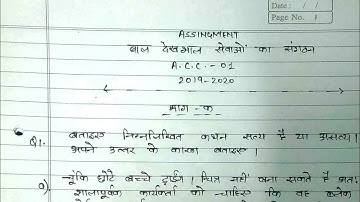 Date : / /
Page No. 1
ASSINGMENT
बाल देखभाल सेवाओं का संगठन
A.C.C.-01
2019-2020
भाग - क
Q1. बताइए निम्नलिखित कथन सत्य है या असत्य।
अपने उत्तर के कारण बताइए।
a) चूंकि छोटे बच्चे ड्राईंग। चित्र नहीं बना सकते है अतः
शालापूर्वक कार्यकर्ता को चाहिए कि वह